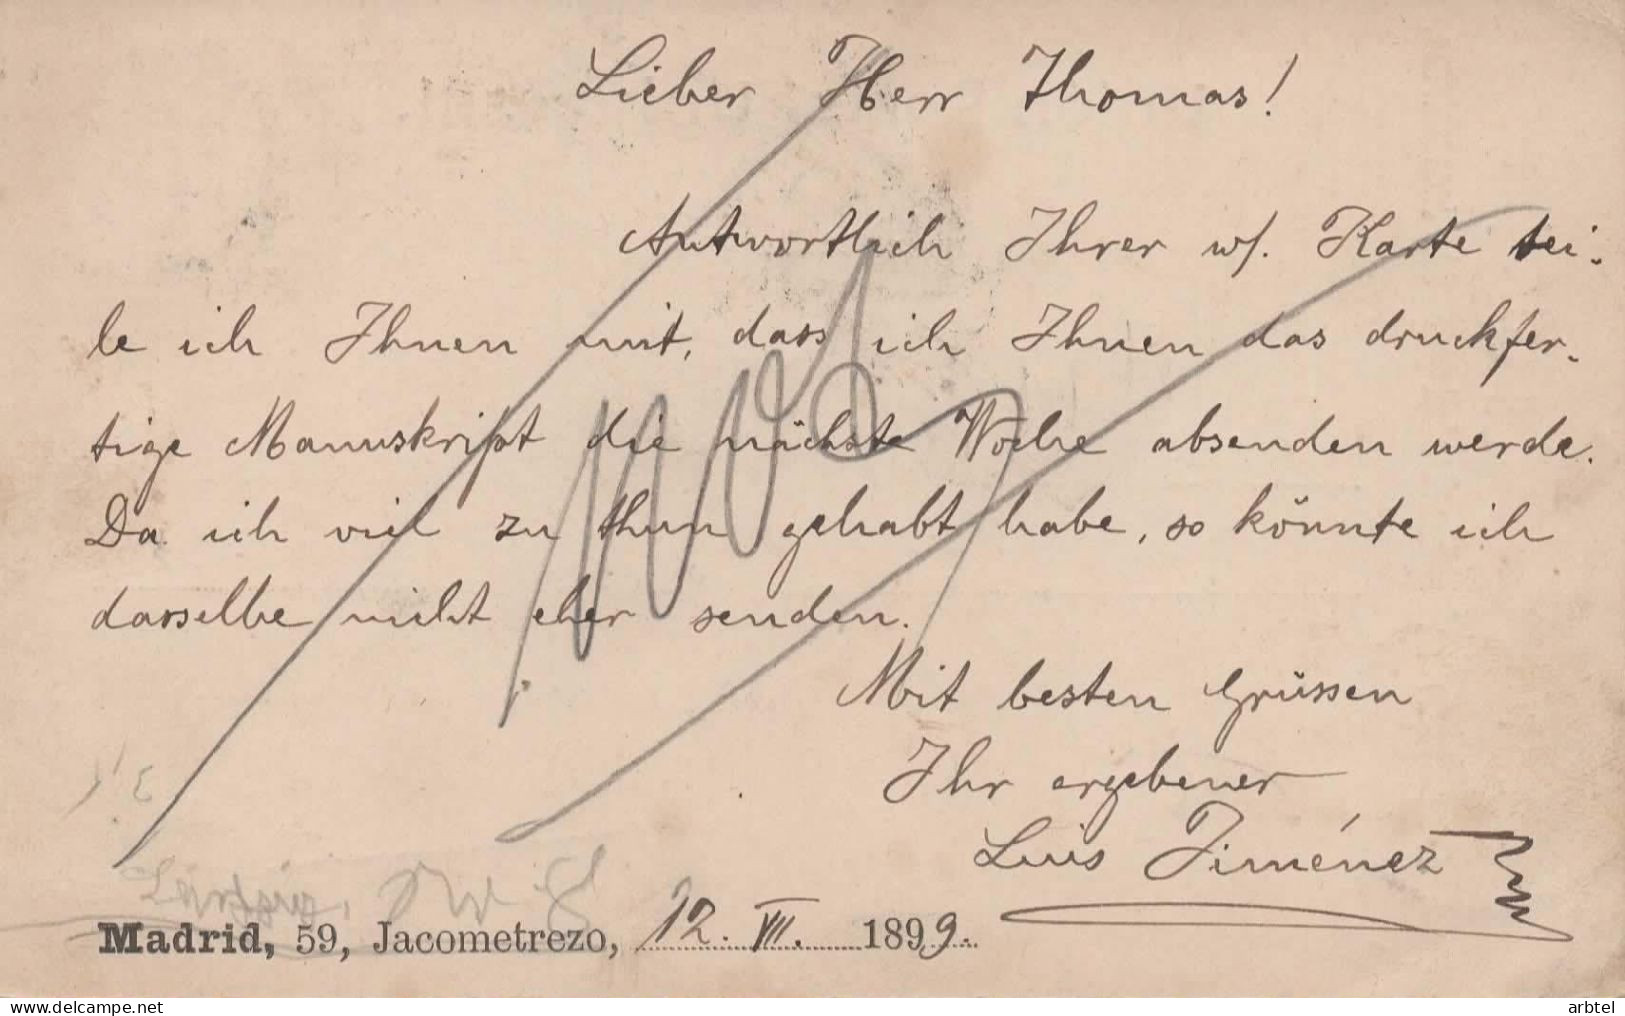 Lieber Herr Thomas!
Antwortlich Ihrer w/. Karte tei-
le ich Ihnen mit, dass ich Ihnen das druckfer-
tige Manuskript die nächste Woche absenden werde.
Da ich viel zu thun gehabt habe, so könnte ich
dasselbe nicht eher senden.
Mit besten Grüssen
Ihr ergebener
Luis Jiménez
Leipzig,
Madrid, 59, Jacometrezo, 12. VII. 1899.
www.delcampe.net
arbtel